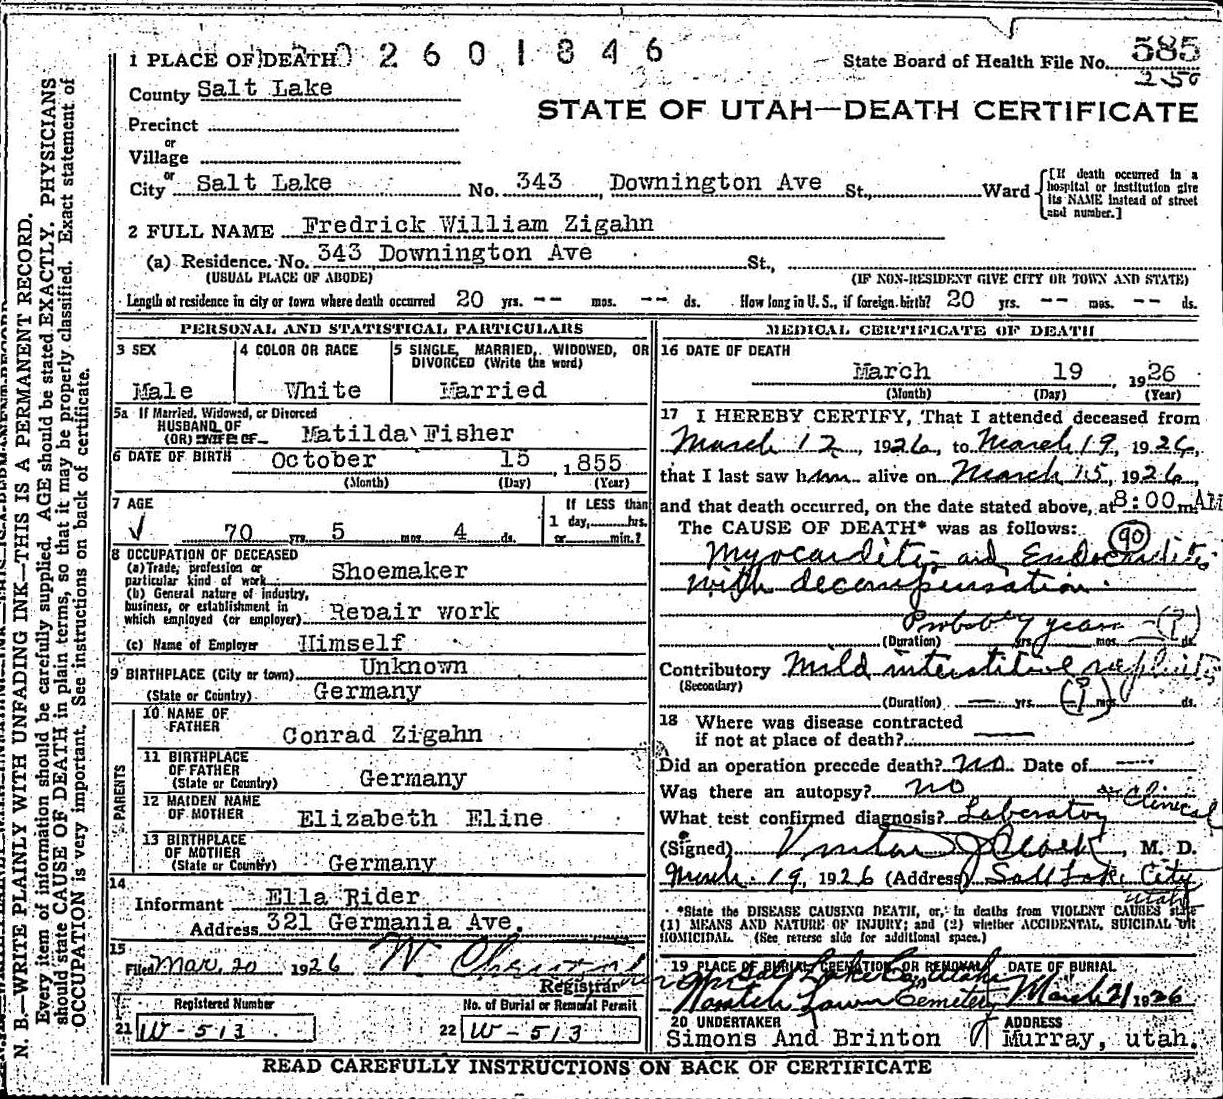 1 PLACE OF DEATH 02601846
State Board of Health File No. 585
250
County Salt Lake
STATE OF UTAH—DEATH CERTIFICATE
Precinct
or
Village
or
City Salt Lake No. 343 Downington Ave St., Ward
[If death occurred in a hospital or institution give its NAME instead of street and number.]
2 FULL NAME Fredrick William Zigahn
(a) Residence. No. 343 Downington Ave St.,
(USUAL PLACE OF ABODE) (IF NON-RESIDENT GIVE CITY OR TOWN AND STATE)
Length of residence in city or town where death occurred 20 yrs. -- mos. -- ds. How long in U. S., if foreign birth? 20 yrs. -- mos. -- ds.
PERSONAL AND STATISTICAL PARTICULARS
3 SEX
Male
4 COLOR OR RACE
White
5 SINGLE, MARRIED, WIDOWED, OR
DIVORCED (Write the word)
Married
5a If Married, Widowed, or Divorced
HUSBAND OF
(OR) WIFE OF Matilda Fisher
6 DATE OF BIRTH October 15, 1855
(Month) (Day) (Year)
7 AGE
70 yrs. 5 mos. 4 ds.
If LESS than
1 day, hrs.
or min.?
8 OCCUPATION OF DECEASED
(a) Trade, profession or
particular kind of work Shoemaker
(b) General nature of industry,
business, or establishment in
which employed (or employer) Repair work
(c) Name of Employer Himself
9 BIRTHPLACE (City or town) Unknown
(State or Country) Germany
PARENTS
10 NAME OF
FATHER Conrad Zigahn
11 BIRTHPLACE
OF FATHER
(State or Country) Germany
12 MAIDEN NAME
OF MOTHER Elizabeth Eline
13 BIRTHPLACE
OF MOTHER
(State or Country) Germany
14
Informant Ella Rider
Address 321 Germania Ave.
15
Filed Mar. 20 1926 W
Registrar
Registered Number
21 W-513
No. of Burial or Removal Permit
22 W-513
MEDICAL CERTIFICATE OF DEATH
16 DATE OF DEATH
March 19, 1926
(Month) (Day) (Year)
17 I HEREBY CERTIFY, That I attended deceased from
March 12, 1926, to March 19, 1926,
that I last saw him alive on March 15, 1926,
and that death occurred, on the date stated above, at 8:00 m AM
The CAUSE OF DEATH* was as follows:
90
Myocarditis and Endocarditis
with decompensation.
Probably years (?)
(Duration) yrs. mos. ds.
Contributory Mild interstitial nephritis
(Secondary)
(Duration) — yrs. (?) mos. ds.
18 Where was disease contracted
if not at place of death?
Did an operation precede death? No Date of
Was there an autopsy? no
What test confirmed diagnosis? Laboratory & Clinical
(Signed) M. D.
March 19, 1926 (Address) Salt Lake City
Utah
*State the DISEASE CAUSING DEATH, or, in deaths from VIOLENT CAUSES state
(1) MEANS AND NATURE OF INJURY; and (2) whether ACCIDENTAL, SUICIDAL OR
HOMICIDAL. (See reverse side for additional space.)
19 PLACE OF BURIAL, CREMATION, OR REMOVAL DATE OF BURIAL
Salt Lake Co, Utah
Wasatch Lawn Cemetery March 21 1926
20 UNDERTAKER ADDRESS
Simons And Brinton Murray, utah.
READ CAREFULLY INSTRUCTIONS ON BACK OF CERTIFICATE
N. B.—WRITE PLAINLY WITH UNFADING INK—THIS IS A PERMANENT RECORD.
Every item of information should be carefully supplied. AGE should be stated EXACTLY. PHYSICIANS
should state CAUSE OF DEATH in plain terms, so that it may be properly classified. Exact statement of
OCCUPATION is very important. See instructions on back of certificate.